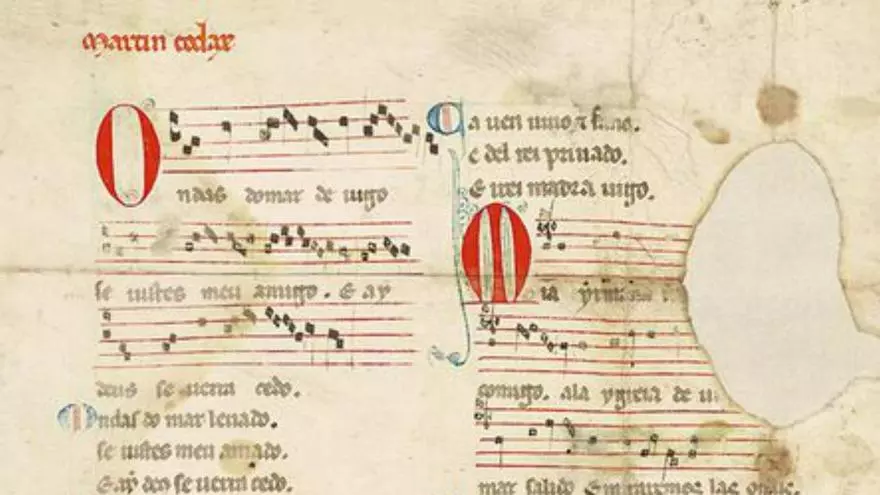 martin codax
Ondas domar de uigo
se uistes meu amigo. E ay
deus se uerra cedo.
Ondas do mar leuado.
se uistes meu amado.
E ay deus se uerra cedo.
Ca uen uiuo
e del rei priuado.
E irei madra uigo.
Mia
comigo. ala ygreia de
mar salido